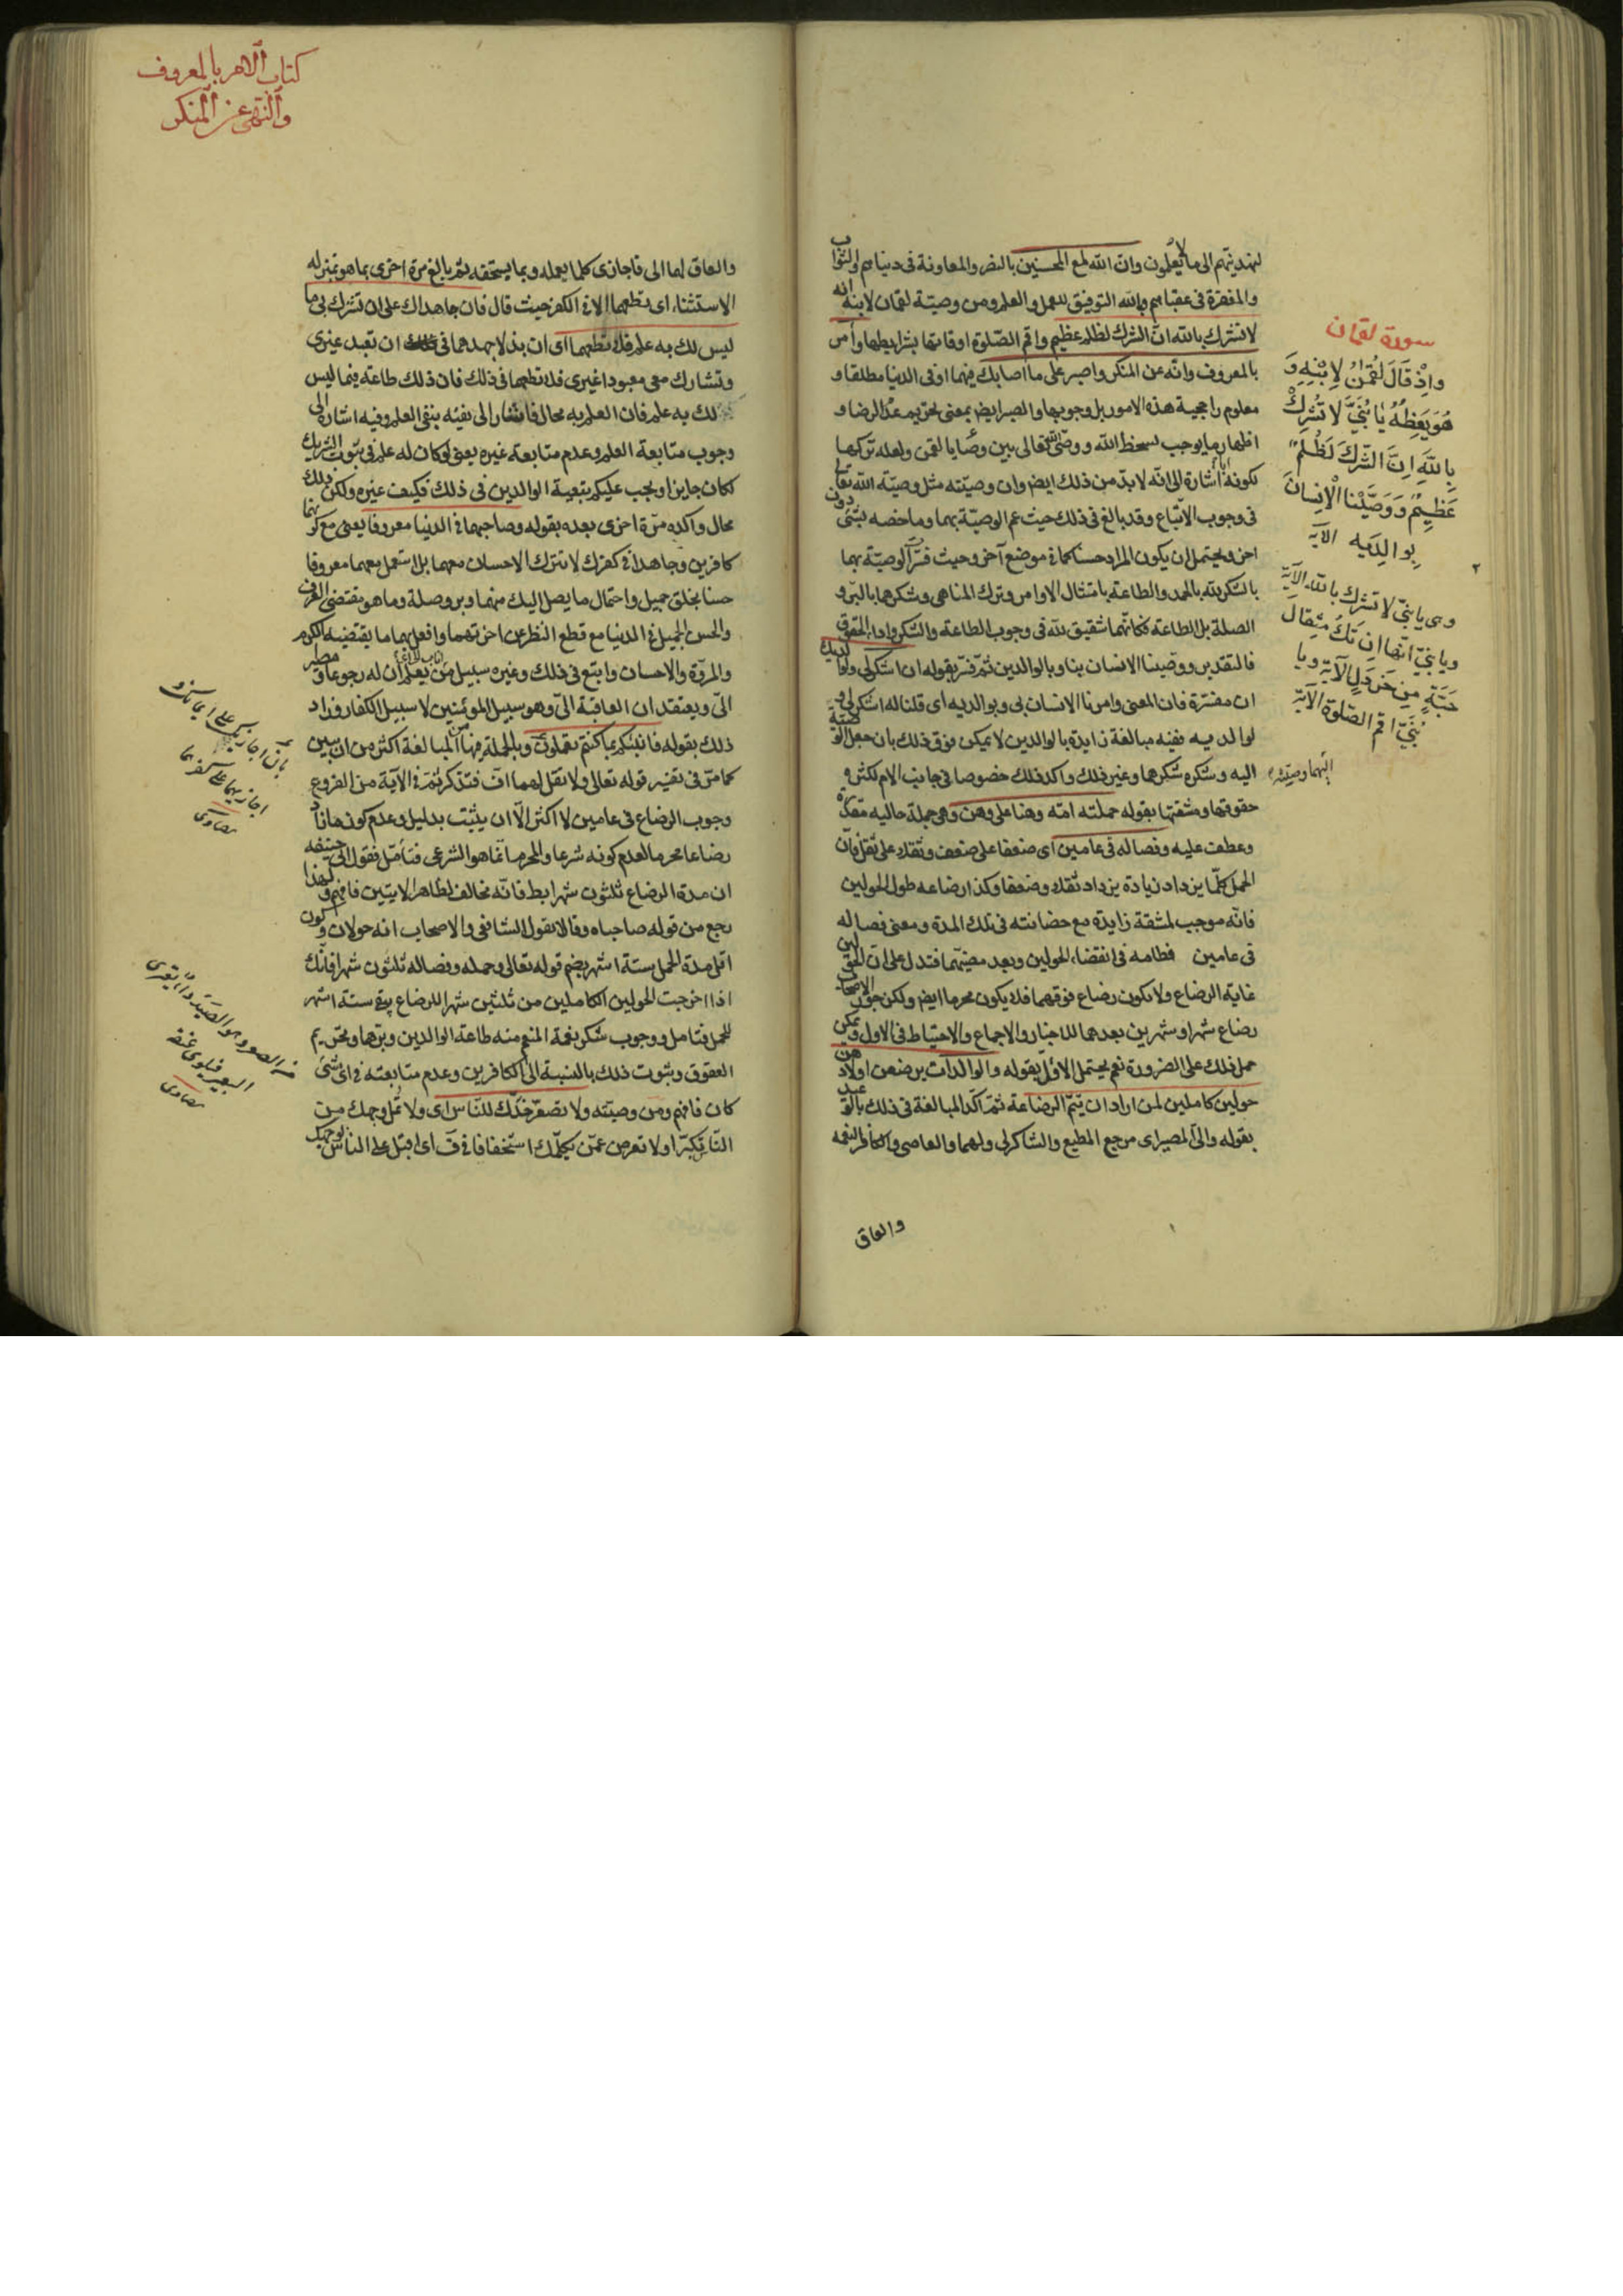 لهديتهم الى ما لا يعلمون وان الله لمع المحسنين بالنصر والمعاونة فى دنياهم والثواب
والمغفرة فى عقباهم وبالله التوفيق للعمل والعلم ومن وصيّة لقمان لابنه انه
لا تشرك بالله انّ الشرك لظلم عظيم واقم الصّلوة اوقاتها بشرايطها وأمر
بالمعروف وانه عن المنكر واصبر على ما اصابك فيهما او فى الدنيا مطلقا و
معلوم راجحية هذه الامور بل وجوبها والصبر ايض بمعنى تحريم عدم الرضا و
اظهار ما يوجب لسخط الله ووصّى الله تعالى بين وصايا لقمن ولعله تركها
لكونه اشارة الى انّه لابدّ من ذلك ايض وان وصيّته مثل وصيّة الله تعالى
فى وجوب الاتّباع وقد بالغ فى ذلك حيث عم الوصيّة بهما وما خصه بشئ دون
اخر ويحتمل ان يكون المراد حسنا كما فى موضع آخر وحيث فسّر الوصيّة بهما
بالشكر لله بالحمد والطاعة بامتثال الاوامر وترك المناهى وشكرهما بالبرّ و
الصلة بل الطاعة فكانّهما شقيق لله فى وجوب الطاعة والشكر واداء الحقوق
فالتقدير ووصّينا الانسان بنا وبالوالدين ثمّ فسّر بقوله ان اشكر لى ولوالديك
ان مفسّرة فان المعنى وامرنا الانسان بى وبوالديه اى قلنا له اشكر لى و
لوالديه ففيه مبالغة زايدة بالوالدين لا يمكن فوق ذلك بان جعل الوصيّة
اليه وشكره شكرهما وغير ذلك واكد ذلك خصوصا فى جانب الام لكثرة
حقوقها ومشقتها بقوله حملته امّه وهنا على وهن وهى جملة حاليه مقدّرة
وعطف عليه وفصاله فى عامين اى ضعفا على ضعف وثقلا على ثقل فانّ
الحمل كلّما يزداد زيادة يزداد ثقلا وضعفا وكذا ارضاعه طول الحولين
فانّه موجب لمشقة زايدة مع حضانته فى تلك المدة ومعنى فصاله
فى عامين فطامه فى انقضاء الحولين وبعد مضيّهما فتدل على انّ الحولين
غاية الرضاع ولا يكون رضاع فوقهما فلا يكون محرما ايض ولكن جوّز الاصحاب
رضاع شهر او شهرين بعدهما للاخبار والاجماع والاحتياط فى الاول ويمكن
حمل ذلك على الضرورة نعم يحتمل الاول بقوله والوالدات يرضعن اولادهن
حولين كاملين لمن اراد ان يتمّ الرضاعة ثمّ اكّد المبالغة فى ذلك بالوعيد
بقوله والىّ المصير اى مرجع المطيع والشاكر لى ولهما والعاصى والكافر النعمة
والعاق
سورة لقمان
واذ قال لقمن لابنه و
هو يعظه يا بنىّ لا تشرك
بالله انّ الشّرك لظلم
عظيم ووصّينا الانسان
بوالديه الآية
وهى يا بنىّ لا تشرك بالله الآية
ويا بنىّ انّها ان تك مثقال
حبّة من خردل الآية ويا
بنىّ اقم الصّلوة الآية
اليهما وصيّته
كتاب الامر بالمعروف
والنّهى عن المنكر
والعاق لهما الى فاجازى كلما يعمله وبما يستحقه ثم بالغ مرة اخرى بما هو بمنزلة
الاستثناء اى تطعهما الا فى الكفر حيث قال فان جاهداك على ان تشرك بى ما
ليس لك به علم فلا تطعهما اى ان بذلا جهدهما فى ان تعبد غيرى
وتشارك معى معبودا غيرى فلا تطعهما فى ذلك فان ذلك طاعة فيما ليس
لك به علم فان العلم به محال فاشار الى نفيه بنفى العلم وفيه اشارة الى
وجوب متابعة العلم وعدم متابعة غيره يعنى لو كان له علم فى ثبوت الشريك
لكان جايزا ويجب عليكم بتبعية الوالدين فى ذلك فكيف غيره ولكن ذلك
محال واكده مرّة اخرى بعده بقوله وصاحبهما فى الدنيا معروفا يعنى مع كونهما
كافرين وجاهدا فى كفرك لا تترك الاحسان معهما بل استعمل معهما معروفا
حسنا بخلق جميل واحتمال ما يصل اليك منهما وبر وصلة وما هو مقتضى العرف
والحسن الجميل فى الدنيا مع قطع النظر عن اخرتهما وافعل بهما ما يقتضيه الكرم
والمروّة والاحسان واتبع فى ذلك وغيره سبيل من اناب الىّ يعلم ان له رجوعا
الىّ ويعتقد ان العاقبة الىّ وهو سبيل المؤمنين لا سبيل الكفار وزاد
ذلك بقوله فانبئكم بما كنتم تعملون وبالجملة فهنا من المبالغة اكثر من ان يبين
كما مرّ فى تفسير قوله تعالى ولا تقل لهما افّ فتذكر ثمّ فى الآية من الفروع
وجوب الرضاع فى عامين لا اكثر الّا ان يثبت بدليل وعدم كون ما زاد
رضاعا محرما لعدم كونه شرعا والمحرم انّما هو الشرعى فتأمّل فقول ابى حنيفه
ان مدة الرضاع ثلثون شهرا بط فانّه مخالف لظاهر الايتين فافهم ولهذا
رجع من قوله صاحباه وقالا بقول الشافعى والاصحاب انه حولان وكون
اقل مدة الحمل ستة اشهر بضم قوله تعالى وحمله وفصاله ثلثون شهرا فانّك
اذا اخرجت الحولين الكاملين من ثلثين شهرا للرضاع يبقى ستة اشهر
للحمل فتامل ووجوب شكر نعمة المنعم منه طاعة الوالدين وبرّهما وتحريم
العقوق وثبوت ذلك بالنسبة الى الكافرين وعدم متابعته فى اىّ شئ
كان فافهم ومن وصيّته ولا تصعّر خدّك للنّاس اى ولا تمل وجهك من
النّاس تكبّرا ولا تعرض عمّن يكلّمك استخفافا اى اقبل على الناس بوجهك
بان اجازيك على ايمانك و
اجازيهما على كفرهما
بيضاوى
من الصعر وهو الصيد داء يعترى
البعير فيلوى عنقه
بيضاوى